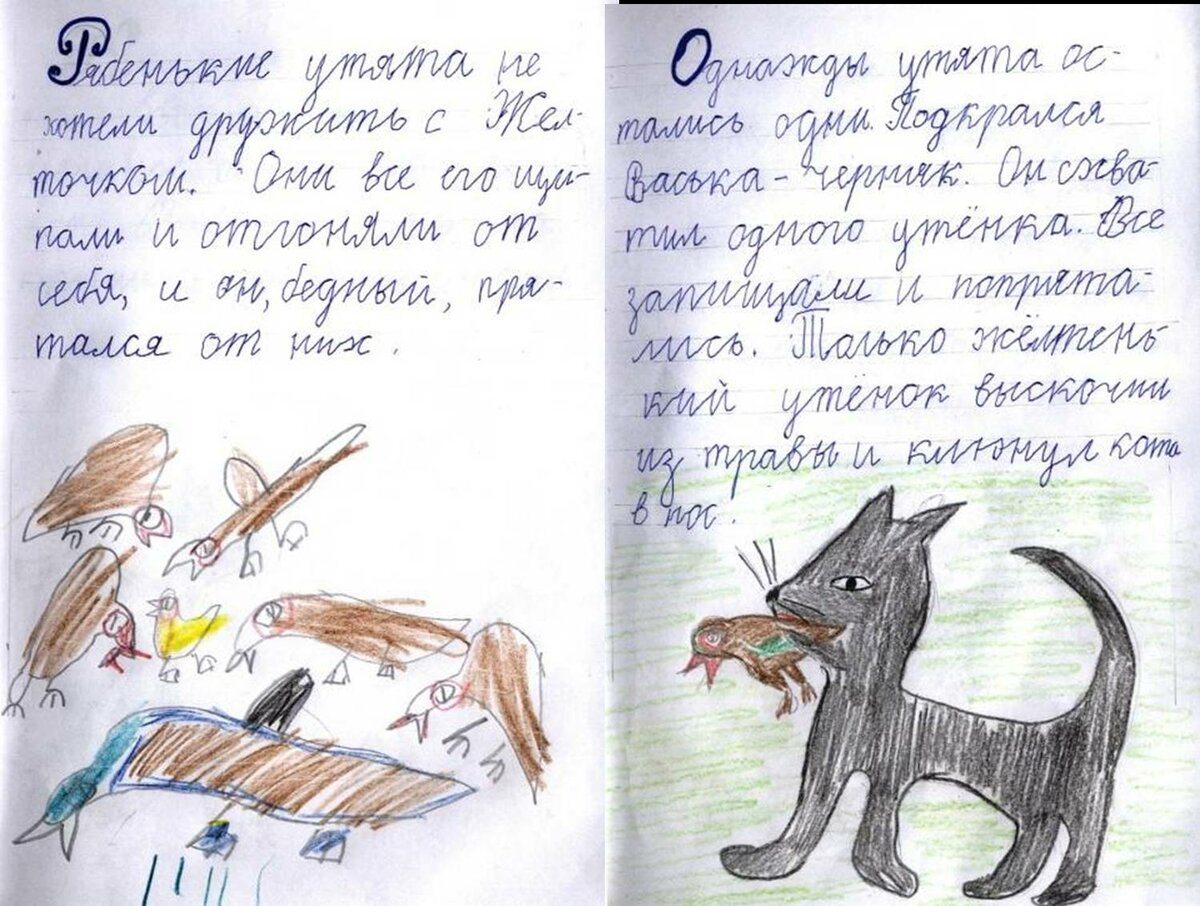 Рябенькие утята не
хотели дружить с Жел-
точком. Они все его щи-
пали и отгоняли от
себя, и он, бедный, пря-
тался от них.
Однажды утята ос-
тались одни. Подкрался
Васька-черняк. Он схва-
тил одного утёнка. Все
запищали и попрята-
лись. Только жёлтень-
кий утёнок выскочил
из травы и клюнул кота
в нос.